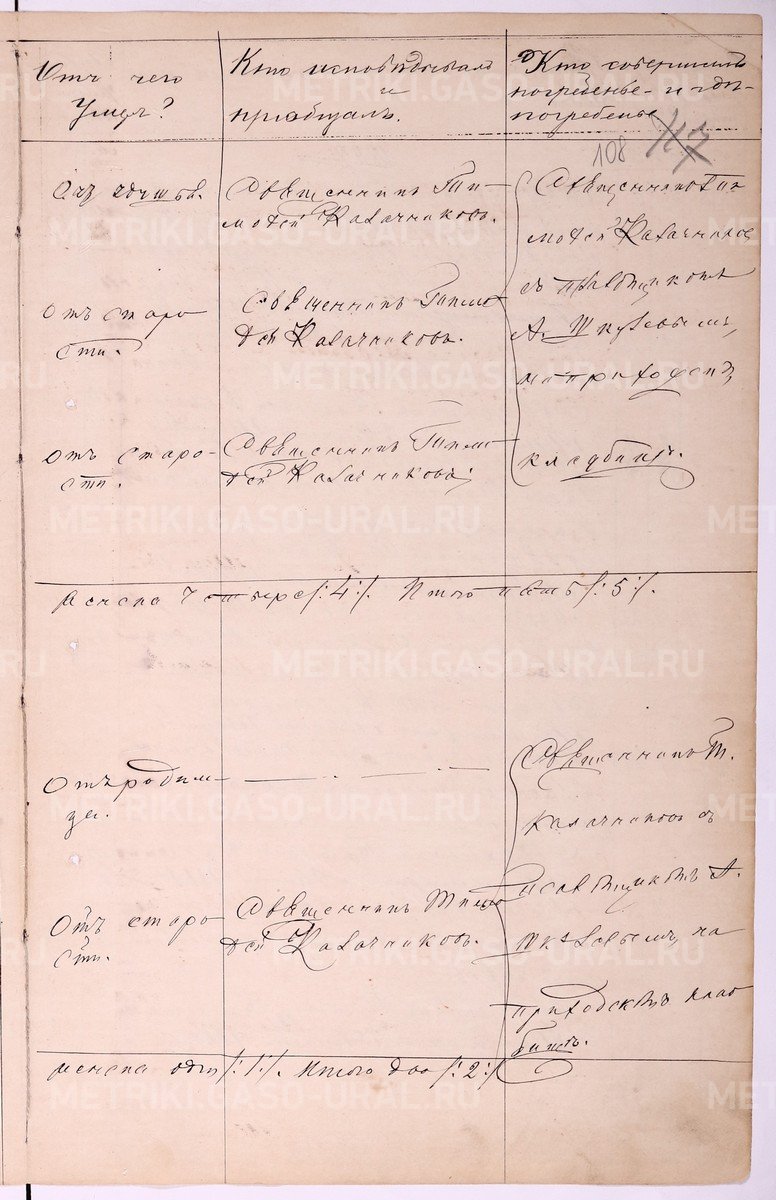 Отъ чего
Умеръ?
Кто исповѣдывалъ
и
пріобщалъ.
Кто совершилъ
погребенье и гдѣ
погребены
108
117
Священникъ Ти-
мофей Калачниковъ.
Священникъ Ти
мофей Калачниковъ
съ
А.
на приходск
кладбищѣ.
Отъ старо
сти.
Священникъ Тимо
фей Калачниковъ.
Отъ старо-
сти.
Священникъ Тимо
фей Калачниковъ
женска четыре /:4:/. Итого пять /:5:/.
Отъ родим
ца.
Священникъ Т.
Калачниковъ съ
псаломщикомъ А.
на
приходскомъ клад
бищѣ.
Отъ старо
сти.
Священникъ Тимо
фей Калачниковъ.
женска одна /:1:/. Итого два /:2:/
METRIKI.GASO-URAL.RU